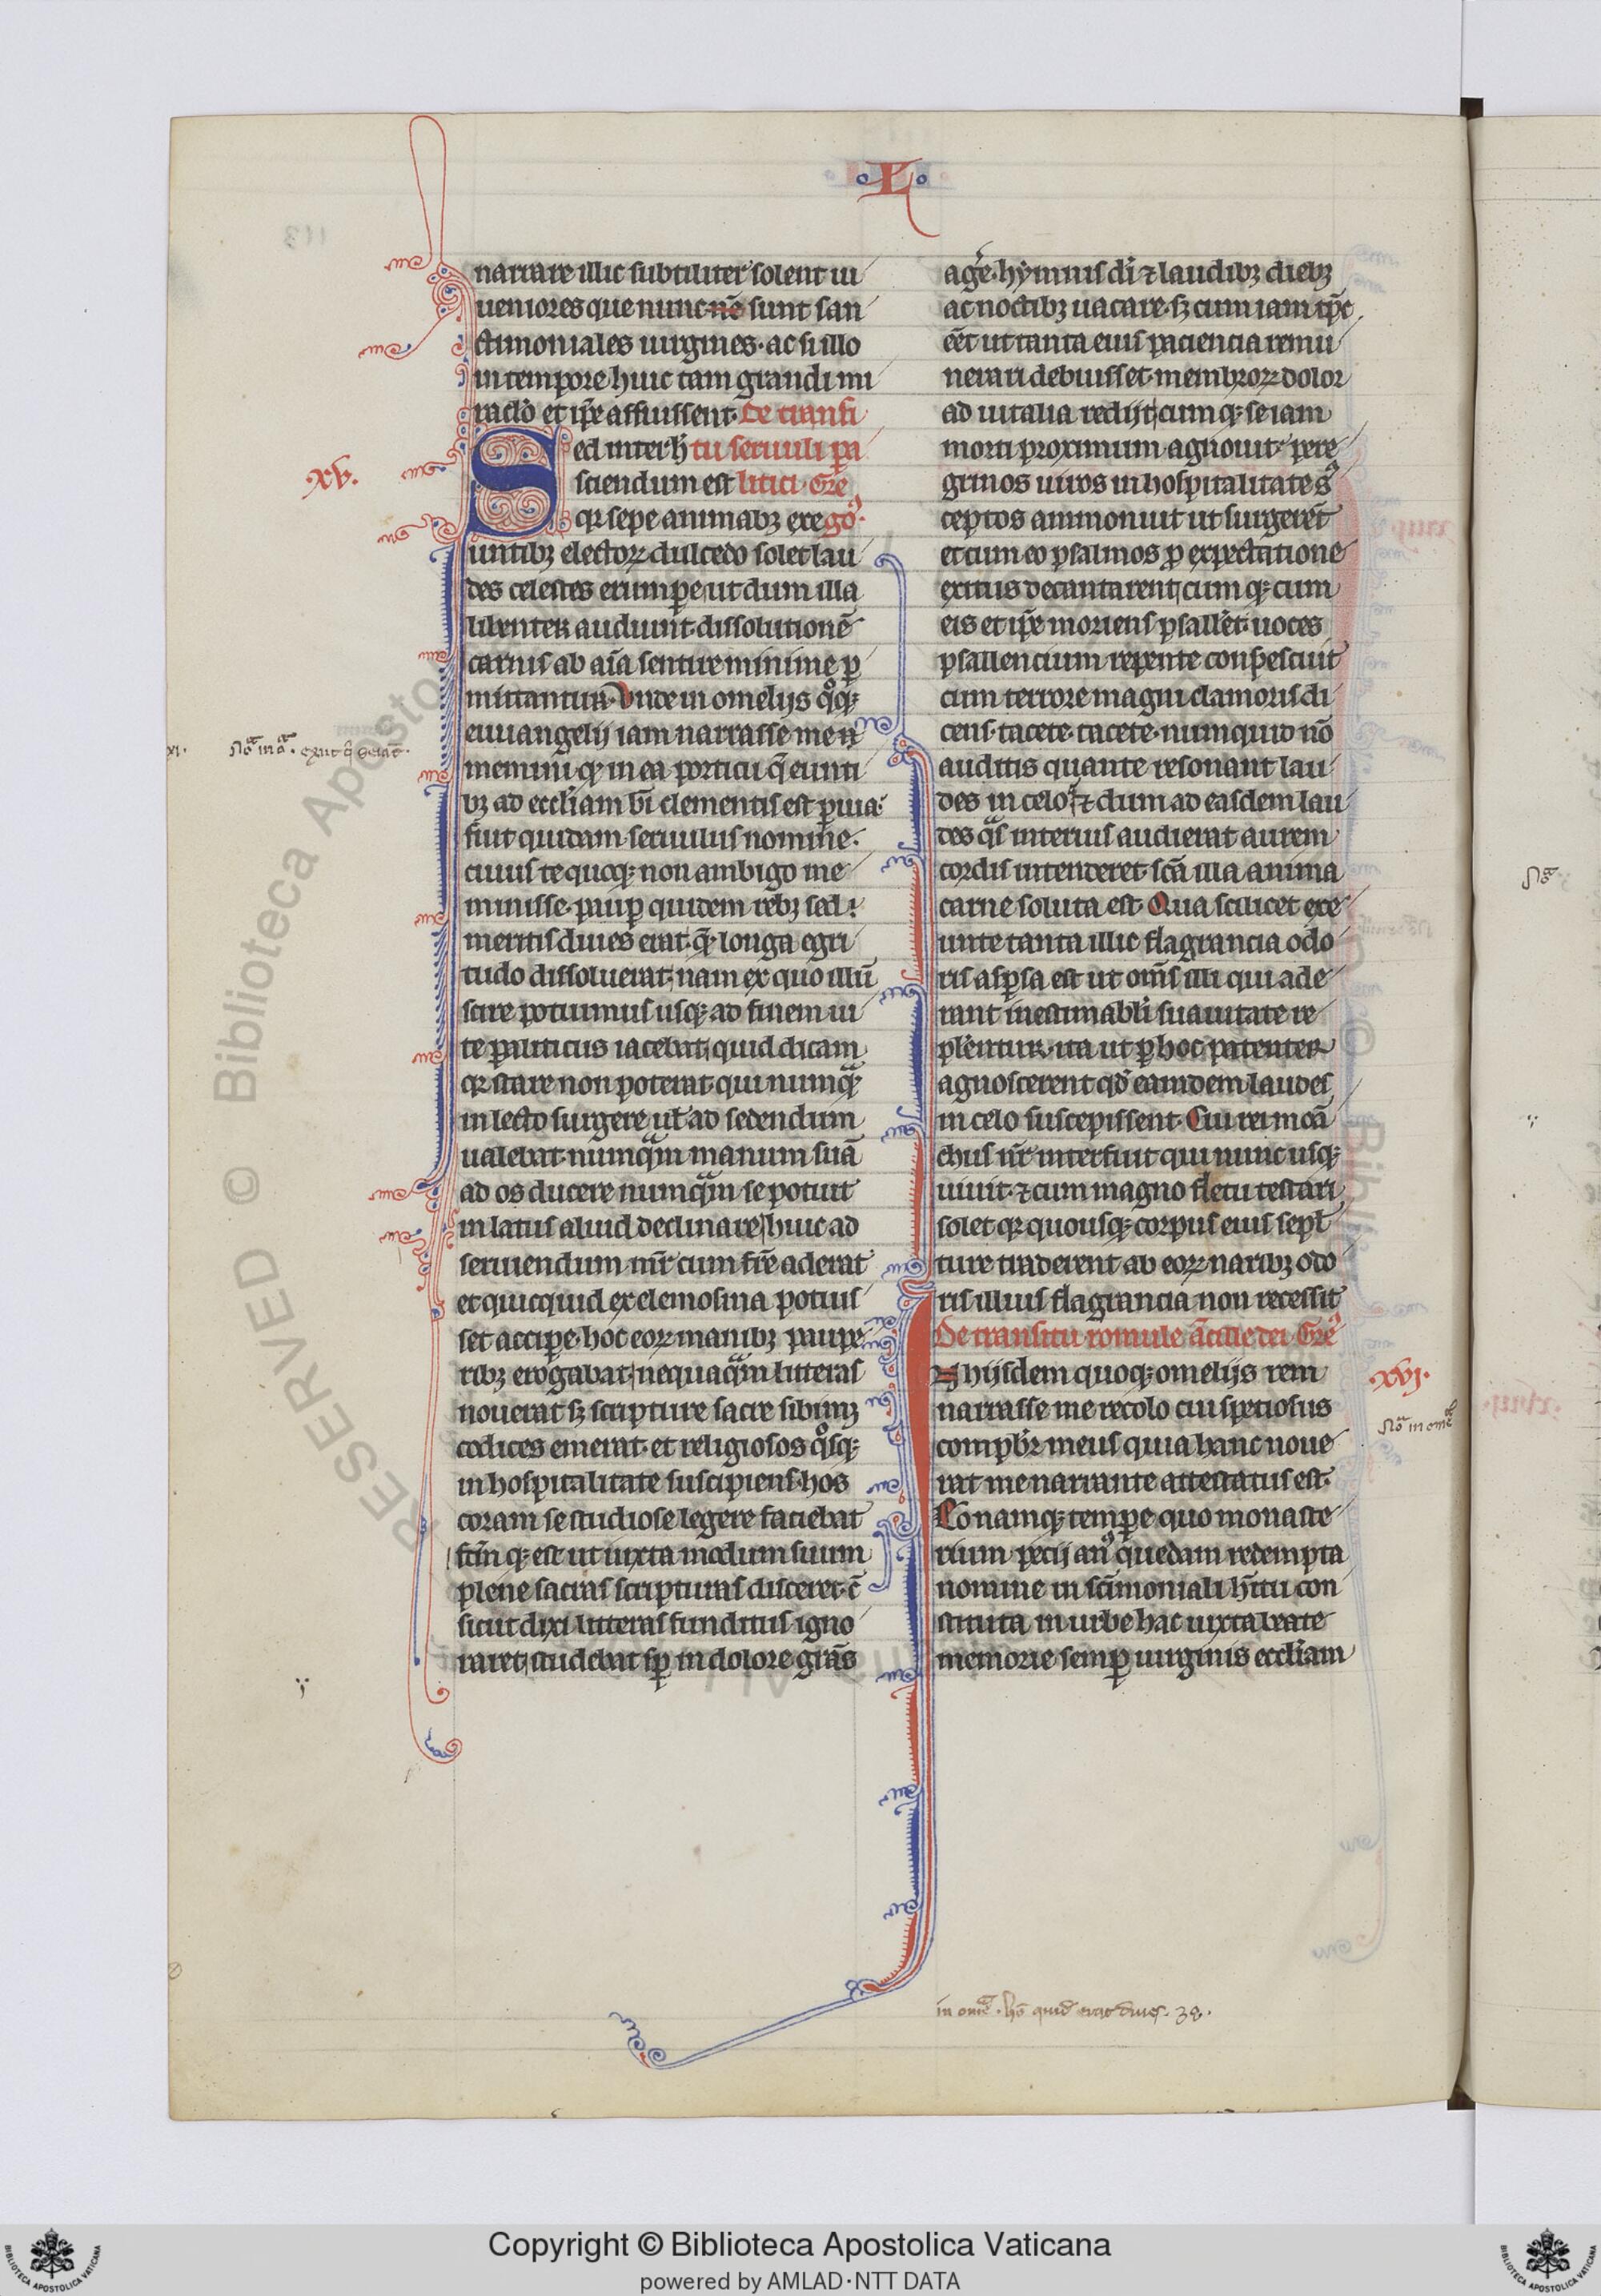 L
narrare illic subtiliter solent iu
ueniores que nunc sunt san
ctimoniales uirgines. ac si illo
in tempore huic tam grandi mi
raclo et ipe affuissent. De transi
Sed inter h tu seruuli pa
XV.
sciendum est litici. Gre
qr sepe animabz exe go.
untibz electorz dulcedo solet lau
des celestes erumpe, ut dum illa
libenter audiunt. dissolutionē
carnis ab aīa sentire minime p
mittantur. Unde in omelijs qoqz
euuangelij iam narrasse me
meminī qp in ea porticu q̄ eunti
bz ad eccliam bī clementis est puia.
fuit quidam seruulus nomine.
cuius te quoqz non ambigo me
minisse. paup quidem rebz sed
meritis diues erat. q longa egri
tudo dissoluerat, nam ex quo illū
scire potuimus usqz ad finem ui
te paliticus iacebat, quid dicam
qr stare non poterat qui numq
in lecto surgere ul ad sedendum
ualebat. numqm manum suā
ad os ducere numqm se potuit
in latus aliud declinare, huic ad
seruiendum mr cum fre aderat
et quicquid ex elemosina potuis
set accipe. hoc eorz manibz paupe
ribz erogabat, nequaqm litteras
nouerat sz scripture sacre sibimz
codices emerat. et religiosos qosqz
in hospitalitate suscipiens. hos
coram se studiose legere faciebat
fctm qz est ut iuxta modum suum
plene sacras scripturas disceret. c̄
sicut dixi litteras funditus igno
raret, studebat sp in dolore grās
agere. hymnis dī ⁊ laudibz diebz
ac noctibz uacare. sz cum iam tpc
eēt ut tanta eius paciencia remu
nerari debuisset. membrorz dolor
ad uitalia redijt, cumqz se iam
morti proximum agnouit. pere
grinos uiros in hospitalitate s
ceptos ammonuit ut surgerēt
et cum eo psalmos p expectatione
exitus decantarent, cum qz cum
eis et ipe moriens psallēt. uoces
psallencium repente conpescuit
cum terrore magni clamoris di
cens. tacete. tacete. numquid nō
auditis quante resonant lau
des in celo? ⁊ dum ad easdem lau
des qs interius audierat aurem
cordis intenderet. scā illa anima
carne soluta est. Qua scilicet exe
unte tanta illic flagrancia odo
ris aspsa est ut oms illi qui ade
rant inestimabli suauitate re
plentur. ita ut p hoc patenter
agnoscerent qd eamdem laudes
in celo suscepissent. Cui rei moā
chus nr interfuit qui nunc usqz
uiuit. ⁊ cum magno fletu testari
solet qr quousqz corpus eius sepl
ture traderent ab eorz naribz odo
ris illius flagrancia non recessit
De transitu romule ācille dei. Gre
In hijsdem quoqz omelijs rem
XVI.
narrasse me recolo cui speciosus
compbr meus quia hanc noue
rat me narrante attestatus est.
Eo namqz tempe quo monaste
rium petij an quedam redempta
nomine in scimoniali hitu con
stituta in urbe hac iuxta beate
memorie semp uirginis eccliam
Copyright © Biblioteca Apostolica Vaticana
powered by AMLAD·NTT DATA